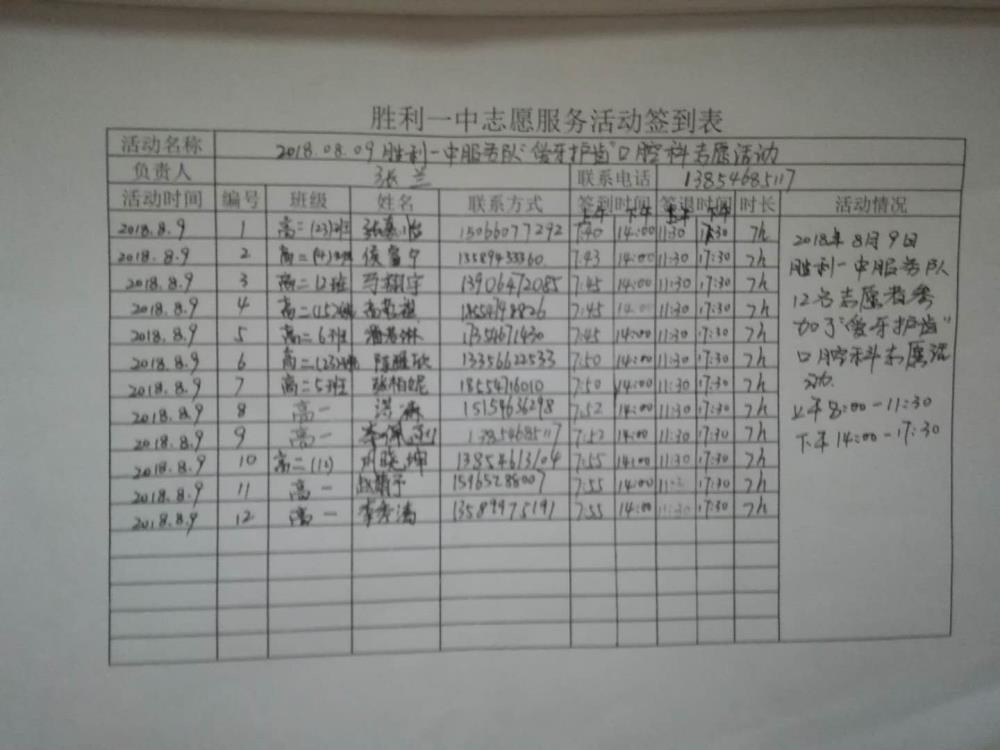 胜利一中志愿服务活动签到表
活动名称 2018.08.09胜利一中服务队"爱牙护齿"口腔科志愿活动
负责人 张兰 联系电话 13854685117
活动时间 编号 班级 姓名 联系方式 签到时间 签退时间 时长 活动情况
上午 下午 上午 下午
2018.8.9 1 高二(23)班 15066077292 7:40 14:00 11:30 17:30 7h
2018.8.9 2 高二 13589433360 7:43 14:00 11:30 17:30 7h
2018.8.9 3 高二12班 马翔宇 13906472085 7:45 14:00 11:30 17:30 7h
2018.8.9 4 高二(15) 7:45 14:00 11:30 17:30 7h
2018.8.9 5 高二6班 7:45 14:00 11:30 17:30 7h
2018.8.9 6 高二(23)班 13356622533 7:50 14:00 11:30 17:30 7h
2018.8.9 7 高二5班 18554716010 7:50 14:00 11:30 17:30 7h
2018.8.9 8 高一 15154636298 7:52 14:00 11:30 17:30 7h
2018.8.9 9 高一 13854685117 7:52 14:00 11:30 17:30 7h
2018.8.9 10 高二(12) 13854613104 7:55 14:00 11:30 17:30 7h
2018.8.9 11 高一 15965288007 7:55 14:00 17:30 7h
2018.8.9 12 高一 13589975191 7:55 14:00 11:30 17:30 7h
2018年8月9日
胜利一中服务队
12名志愿者参
加了"爱牙护齿"
口腔科志愿活
动.
上午8:00-11:30
下午14:00-17:30